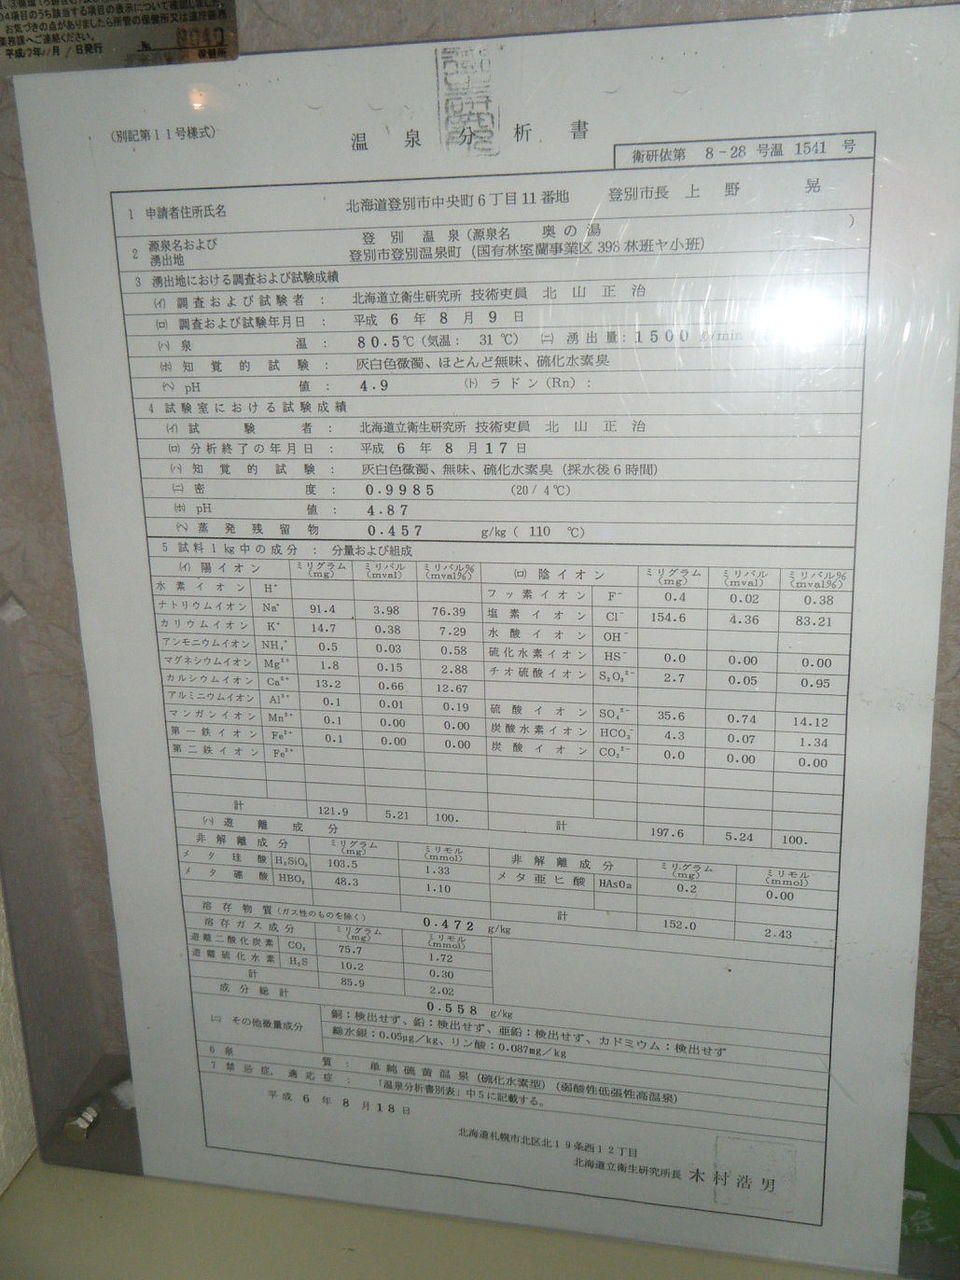 お気づきの点がありましたら所管の保健所又は
業務課へご連絡ください。
保健所
(別記第11号様式)
温泉分析書
衛研依第 8-28 号温 1541 号
1 申請者住所氏名 北海道登別市中央町6丁目11番地 登別市長 上野 晃
2 源泉名および湧出地 登別温泉(源泉名 奥の湯 )
登別市登別温泉町(国有林室蘭事業区398林班ヤ小班)
3 湧出地における調査および試験成績
(イ) 調査および試験者: 北海道立衛生研究所 技術吏員 北山正治
(ロ) 調査および試験年月日: 平成 6 年 8 月 9 日
(ハ) 泉温: 80.5℃(気温: 31℃) (ニ) 湧出量: 1500 ℓ/min
(ホ) 知覚的試験: 灰白色微濁、ほとんど無味、硫化水素臭
(ヘ) pH値: 4.9 (ト) ラドン(Rn):
4 試験室における試験成績
(イ) 試験者: 北海道立衛生研究所 技術吏員 北山正治
(ロ) 分析終了の年月日: 平成 6 年 8 月 17 日
(ハ) 知覚的試験: 灰白色微濁、無味、硫化水素臭(採水後6時間)
(ニ) 密度: 0.9985 (20/4℃)
(ホ) pH値: 4.87
(ヘ) 蒸発残留物 0.457 g/kg( 110 ℃)
5 試料1kg中の成分: 分量および組成
(イ) 陽イオン ミリグラム(mg) ミリバル(mval) ミリバル%(mval%) (ロ) 陰イオン ミリグラム(mg) ミリバル(mval) ミリバル%(mval%)
水素イオン H⁺ フッ素イオン F⁻ 0.4 0.02 0.38
ナトリウムイオン Na⁺ 91.4 3.98 76.39 塩素イオン Cl⁻ 154.6 4.36 83.21
カリウムイオン K⁺ 14.7 0.38 7.29 水酸イオン OH⁻
アンモニウムイオン NH₄⁺ 0.5 0.03 0.58 硫化水素イオン HS⁻ 0.0 0.00 0.00
マグネシウムイオン Mg²⁺ 1.8 0.15 2.88 チオ硫酸イオン S₂O₃²⁻ 2.7 0.05 0.95
カルシウムイオン Ca²⁺ 13.2 0.66 12.67
アルミニウムイオン Al³⁺ 0.1 0.01 0.19 硫酸イオン SO₄²⁻ 35.6 0.74 14.12
マンガンイオン Mn²⁺ 0.1 0.00 0.00 炭酸水素イオン HCO₃⁻ 4.3 0.07 1.34
第一鉄イオン Fe²⁺ 0.1 0.00 0.00 炭酸イオン CO₃²⁻ 0.0 0.00 0.00
第二鉄イオン Fe³⁺
計 121.9 5.21 100. 計 197.6 5.24 100.
(ハ) 遊離成分
非解離成分 ミリグラム(mg) ミリモル(mmol) 非解離成分 ミリグラム(mg) ミリモル(mmol)
メタ珪酸 H₂SiO₃ 103.5 1.33 メタ亜ヒ酸 HAsO₂ 0.2 0.00
メタ硼酸 HBO₂ 48.3 1.10
計 152.0 2.43
溶存物質(ガス性のものを除く) 0.472 g/kg
溶存ガス成分 ミリグラム(mg) ミリモル(mmol)
遊離二酸化炭素 CO₂ 75.7 1.72
遊離硫化水素 H₂S 10.2 0.30
計 85.9 2.02
成分総計 0.558 g/kg
(ニ) その他微量成分 銅:検出せず、鉛:検出せず、亜鉛:検出せず、カドミウム:検出せず
総水銀:0.05μg/kg、リン酸:0.087mg/kg
6 泉質: 単純硫黄温泉(硫化水素型)(弱酸性低張性高温泉)
7 禁忌症、適応症: 「温泉分析書別表」中5に記載する。
平成 6 年 8 月 18 日
北海道札幌市北区北19条西12丁目
北海道立衛生研究所長 木村浩男